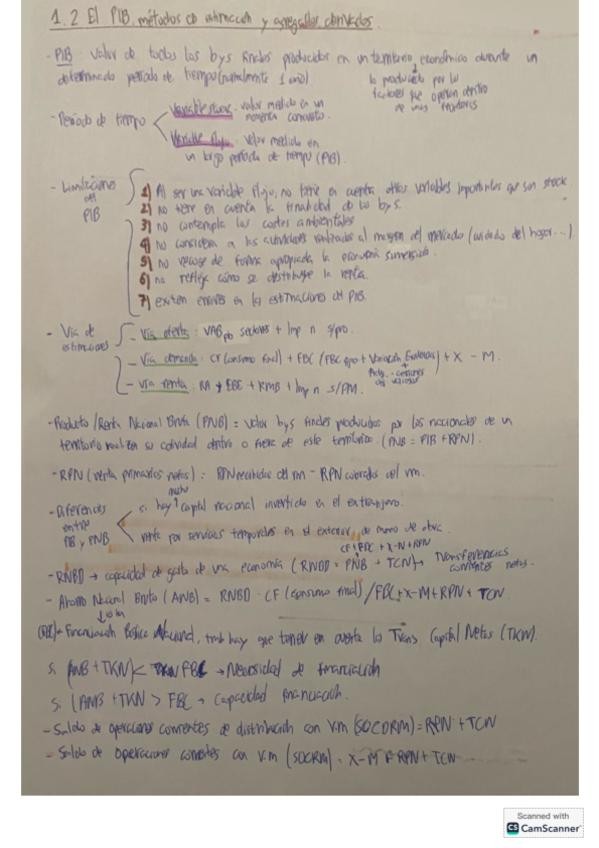 1.2 El PIB, métodos de estimación y agregados derivados.
- PIB: Valor de todos los bys finales producidos en un territorio económico durante un
determinado período de tiempo (normalmente 1 año)
lo producido por los
factores que operan dentro
de unas fronteras
- Período de tiempo
Variable stock: valor medido en un
momento concreto.
Variable flujo: Valor medido en
un largo período de tiempo (PIB).
- Limitaciones
del
PIB
1) Al ser una variable flujo, no tiene en cuenta otras variables importantes que son stock
2) no tiene en cuenta la finalidad de los bys.
3) no contempla los costes ambientales
4) no considera a las actividades realizadas al margen del mercado (cuidado del hogar...).
5) no recoge de forma apropiada la economía sumergida.
6) no refleja cómo se distribuye la renta.
7) existen errores en las estimaciones del PIB.
- Vía de
estimaciones
- Vía oferta: VABpb sectores + Imp n s/pro.
- Vía demanda: CF (consumo final) + FBC (FBC fijo + Variación Existencias) + X - M.
+
Adq. - cesiones
de valiosos
- Vía renta: RA + EBE + RMB + Imp n s/PM.
- Producto/Renta Nacional Bruta (PNB) = valor bys finales producidos por los nacionales de un
territorio realizan su actividad dentro o fuera de este territorio. (PNB = PIB + RPN).
- RPN (renta primarias netas): RPN recibidas del rm - RPN del rm.
- Diferencias
entre
PIB y PNB
mucho
si hay capital nacional invertido en el extranjero.
renta por servicios temporales en el exterior, de mano de obra.
CF + FBC + X-M + RPN
- RNBD → capacidad de gasto de una economía (RNBD = PNB + TCN) → Transferencias
corrientes netas.
- Ahorro Nacional Bruto (ANB) = RNBD - CF (consumo final) / FBC + X-M + RPN + TCN
Financiación Bruta Nacional, tmb hay que tener en cuenta las Trans Capital Netas (TKN).
Si (ANB + TKN) < FBC → Necesidad de financiación
Si (ANB + TKN > FBC → Capacidad financiación.
- Saldo de operaciones corrientes de distribución con r.m (SOCDRM) = RPN + TCN
- Saldo de operaciones corrientes con r.m (SOCRM) = X - M + RPN + TCN
Scanned with
CS CamScanner